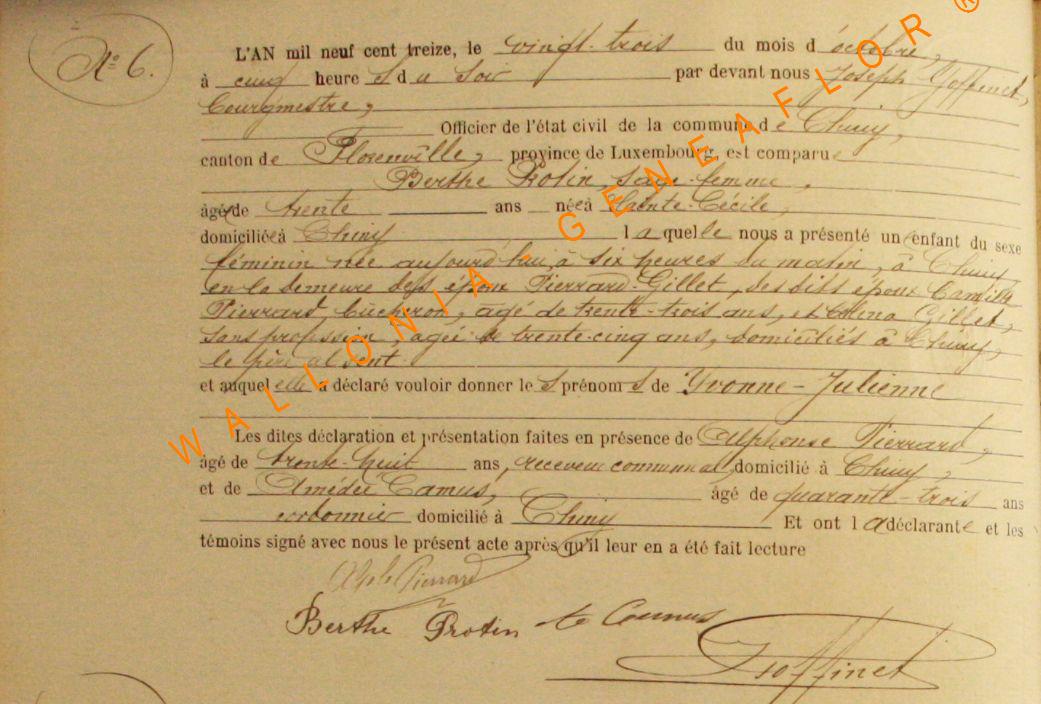 N° 6.
L'AN mil neuf cent treize, le vingt-trois du mois d'octobre,
à cinq heures du soir par devant nous Joseph Goffinet,
bourgmestre,
Officier de l'état civil de la commune de Chiny,
canton de Florenville, province de Luxembourg, est comparue
Berthe Protin, sage-femme,
âgée de trente ans née à Sainte-Cécile,
domiciliée à Chiny laquelle nous a présenté un enfant du sexe
féminin née aujourd'hui, à six heures du matin, à Chiny
en la demeure des époux Pierrard-Gillet, des dits époux Camille
Pierrard, bûcheron, âgé de trente-trois ans, et Gillet,
sans profession, âgée de trente-cinq ans, domiciliés à Chiny,
le père absent
et auquel elle a déclaré vouloir donner les prénoms de Yvonne-Julienne
Les dites déclaration et présentation faites en présence de Alphonse Pierrard,
âgé de trente-huit ans, receveur communal, domicilié à Chiny,
et de Amédée Camus, âgé de quarante-trois ans
cordonnier domicilié à Chiny Et ont la déclarante et les
témoins signé avec nous le présent acte après qu'il leur en a été fait lecture
Alph Pierrard
Berthe Protin Camus
J Goffinet
WALLONIA - GENEAFLOR ®